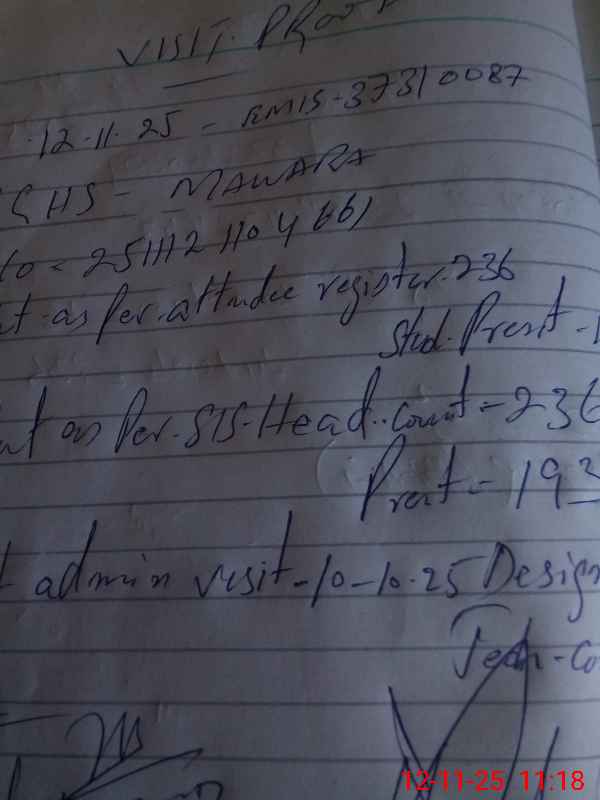 VISIT. PROOF
12.11.25 - EMIS-37310087
GHS - MAWARA
2511121104661
as Per. attendee register. 236
Stud. Presit -
as Per. SIS. Head. count - 236
Presit - 193
admin visit - 10-10.25 Design
Tech - Co
12-11-25 11:18